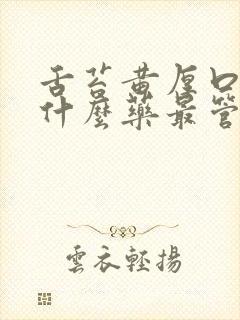 舌苔黄厚口
什麼藥最管
雲衣輕揚